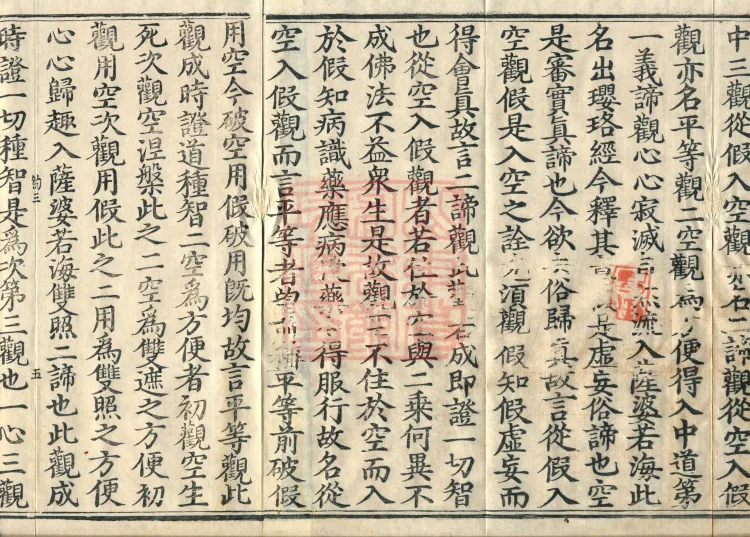 中三觀從假入空觀亦名二諦觀從空入假
觀亦名平等觀二空觀為方便得入中道第
一義諦觀心心寂滅自然流入薩婆若海此
名出瓔珞經今釋其是虛妄俗諦也空
是審實真諦也今欲去俗歸真故言從假入
空觀假是入空之詮先須觀假知假虛妄而
得會真故言二諦觀此觀若成即證一切智
也從空入假觀者若住於空與二乘何異不
成佛法不益眾生是故觀空不住於空而入
於假知病識藥應病授藥令得服行故名從
空入假觀而言平等者望前稱平等前破假
用空今破空用假破用旣均故言平等觀此
觀成時證道種智二空為方便者初觀空生
死次觀空涅槃此之二空為雙遮之方便初
觀用空次觀用假此之二用為雙照之方便
心心歸趣入薩婆若海雙照二諦也此觀成
三
五
時證一切種智是為次第三觀也一心三觀